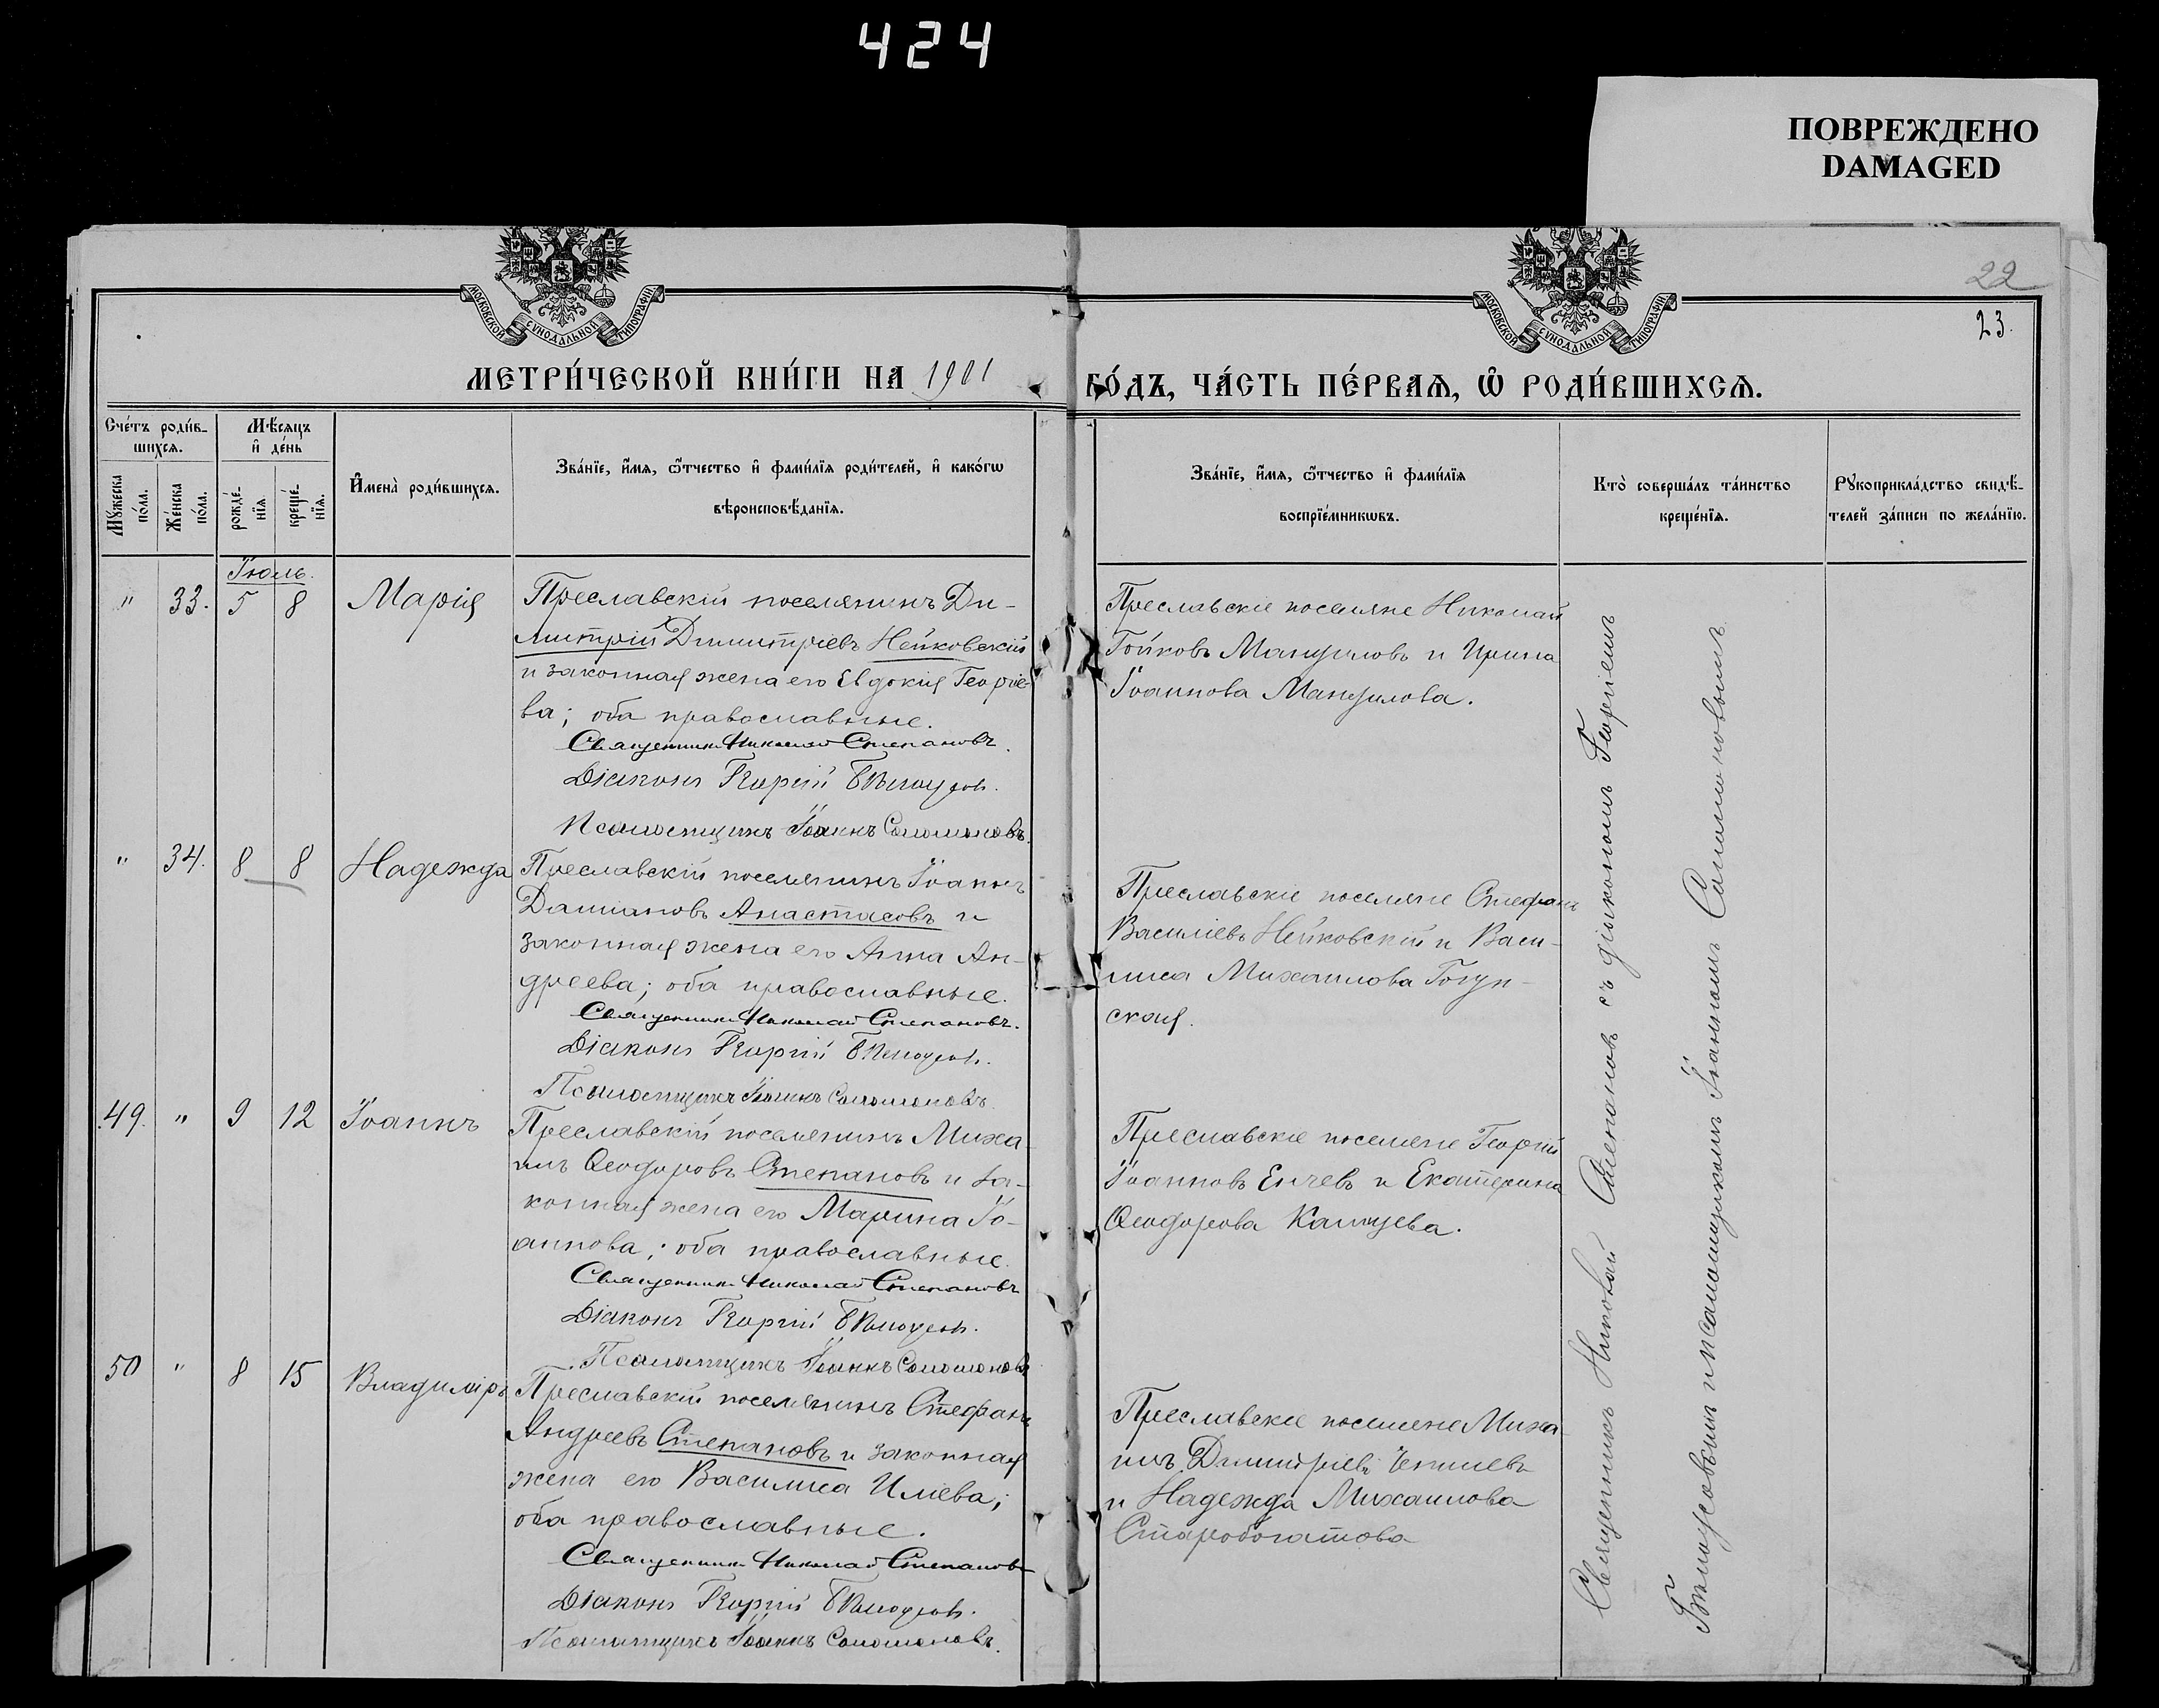 424
ПОВРЕЖДЕНО
DAMAGED
МОСКОВСКОЙ СѴНОДАЛЬНОЙ ТИПОГРАФІИ
МОСКОВСКОЙ СѴНОДАЛЬНОЙ ТИПОГРАФІИ
22
23.
МЕТРИ́ЧЕСКОЙ КНИ́ГИ НА 1901
ГО́ДЪ, ЧА́СТЬ ПЕ́РВАѦ, Ѽ РОДИ́ВШИХСѦ.
Сче́тъ роди́в-
шихсѧ.
Мѣ́сѧцъ
и҆ де́нь
Мꙋ́жеска
по́ла.
Же́нска
по́ла.
рожде́-
нїѧ
креще́-
нїѧ.
И҆мена̀ роди́вшихсѧ.
Зва́нїе, и҆́мѧ, ѻ҆́тчество и҆ фами́лїѧ роди́телей, и҆ како́гѡ
вѣроисповѣ́данїѧ.
Зва́нїе, и҆́мѧ, ѻ҆́тчество и҆ фами́лїѧ
воспрїе́мникѡвъ.
Кто̀ соверша́лъ та́инство
креще́нїѧ.
Рꙋкоприкла́дство свидѣ́-
телей за́писи по жела́нїю.
Іюль.
" 33. 5 8 Марія
Преславскій поселянинъ Ди-
митрій Димитріевъ Нейковскій
и законная жена его Евдокія Георгіе-
ва; оба православные.
Священникъ Николай Степановъ.
Діаконъ Георгій Бѣлоусовъ.
Псаломщикъ Іоаннъ Соломоновъ.
Преславскіе поселяне Николай
Гойковъ Манзуловъ и Ирина
Іоаннова Манзулова.
" 34. 8 8 Надежда
Преславскій поселянинъ Іоаннъ
Даміановъ Анастасовъ и
законная жена его Анна Ан-
дреева; оба православные.
Священникъ Николай Степановъ.
Діаконъ Георгій Бѣлоусовъ.
Псаломщикъ Іоаннъ Соломоновъ.
Преславскіе поселяне Стефанъ
Василіевъ Нейковскій и Васи-
лиса Михаилова
ская.
49. " 9 12 Іоаннъ
Преславскій поселянинъ Миха-
илъ Ѳеодоровъ Степановъ и за-
конная жена его Марина Іо-
аннова; оба православные.
Священникъ Николай Степановъ
Діаконъ Георгій Бѣлоусовъ.
Псаломщикъ Іоаннъ Соломоновъ
Преславскіе поселяне Георгій
Іоанновъ Енчевъ и Екатерина
Ѳеодорова Калчева.
50 " 8 15 Владиміръ
Преславскій поселянинъ Стефанъ
Андреевъ Степановъ и законная
жена его Василиса Иліева;
оба православные.
Священникъ Николай Степановъ
Діаконъ Георгій Бѣлоусовъ.
Псаломщикъ Іоаннъ Соломоновъ.
Преславскіе поселяне Миха-
илъ Димитріевъ
и Надежда Михаилова
Старобогатова
Священникъ Николай Степановъ съ діакономъ Георгіемъ
Бѣлоусовымъ и псаломщикомъ Іоанномъ Соломоновымъ